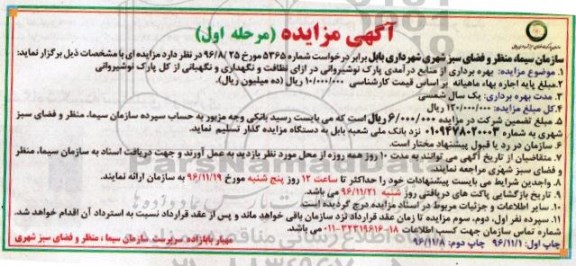 آگهی مزایده (مرحله اول)
سازمان سیما، منظر و فضای سبز شهری شهرداری بابل برابر درخواست شماره ۵۳۶۵ مورخ ۹۶/۸/۲۵ در نظر دارد مزایده ای با مشخصات ذیل برگزار نماید:
۱. موضوع مزایده: بهره برداری از منابع درآمدی پارک نوشیروانی در ازای نظافت و نگهداری و نگهبانی از کل پارک نوشیروانی
۲. مبلغ پایه اجاره بهاء ماهیانه بر اساس قیمت کارشناسی ۱۰/۰۰۰/۰۰۰ ریال (ده میلیون ریال).
۳. مدت بهره برداری: یک سال شمسی
۴. کل مبلغ مزایده: ۱۲۰/۰۰۰/۰۰۰ ریال
۵. مبلغ تضمین شرکت در مزایده ۶/۰۰۰/۰۰۰ ریال است که می بایست رسید بانکی وجه مزبور به حساب سپرده سازمان سیما، منظر و فضای سبز
شهری به شماره ۰۱۰۹۴۷۸۰۲۰۰۳ نزد بانک ملی شعبه بابل به دستگاه مزایده گذار تسلیم نماید.
۶. سازمان در رد یا قبول پیشنهاد مختار است.
۷. متقاضیان از تاریخ آگهی می توانند به مدت ۱۰ روز همه روزه از محل مورد نظر بازدید به عمل آورند و جهت دریافت اسناد به سازمان سیما، منظر
و فضای سبز شهری مراجعه نمایند.
۸. واجدین شرایط می بایست پیشنهادات خود را حداکثر تا ساعت ۱۳ روز پنج شنبه مورخ ۹۶/۱۱/۱۹ به سازمان ارائه نمایند.
۹. تاریخ بازگشایی پاکت های دریافتی روز شنبه ۹۶/۱۱/۲۱ می باشد.
۱۰. سایر اطلاعات و جزئیات مربوط در اسناد مزایده درج گردیده است.
۱۱. سپرده نفر اول، دوم، سوم مزایده تا زمان عقد قرارداد نزد سازمان باقی خواهد ماند و پس از عقد قرارداد نسبت به استرداد آن اقدام خواهد شد.
شماره تماس سازمان جهت کسب اطلاعات ۱۸-۳۲۳۱۹۶۱۶-۰۱۱ می باشد.
چاپ اول: ۹۶/۱۱/۱ چاپ دوم: ۹۶/۱۱/۸
مهیار بابازاده، سرپرست سازمان سیما، منظر و فضای سبز شهری